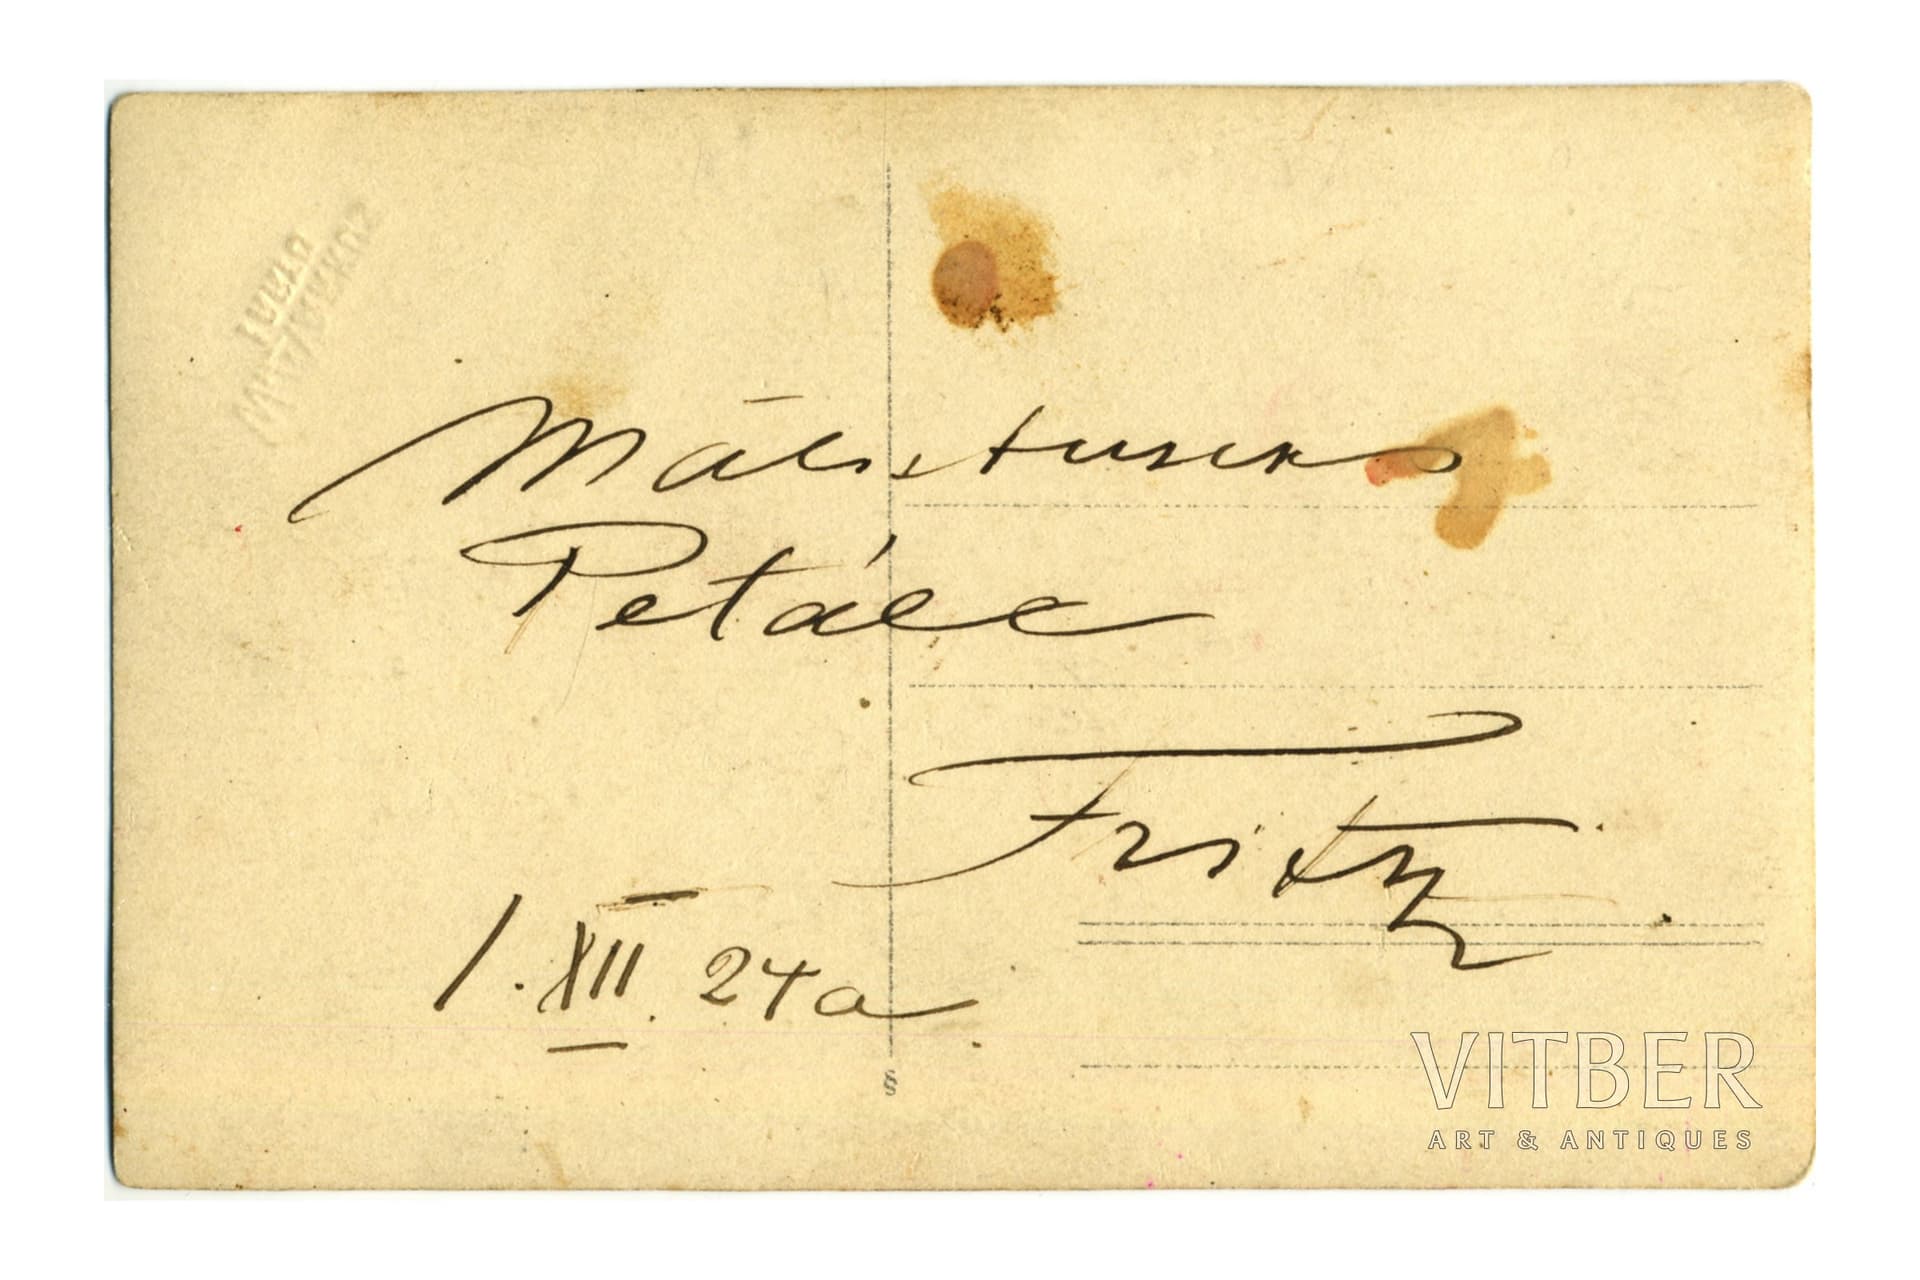 Mälestuseks
Fritz.
1. XII. 24 a
VITBER
ART & ANTIQUES